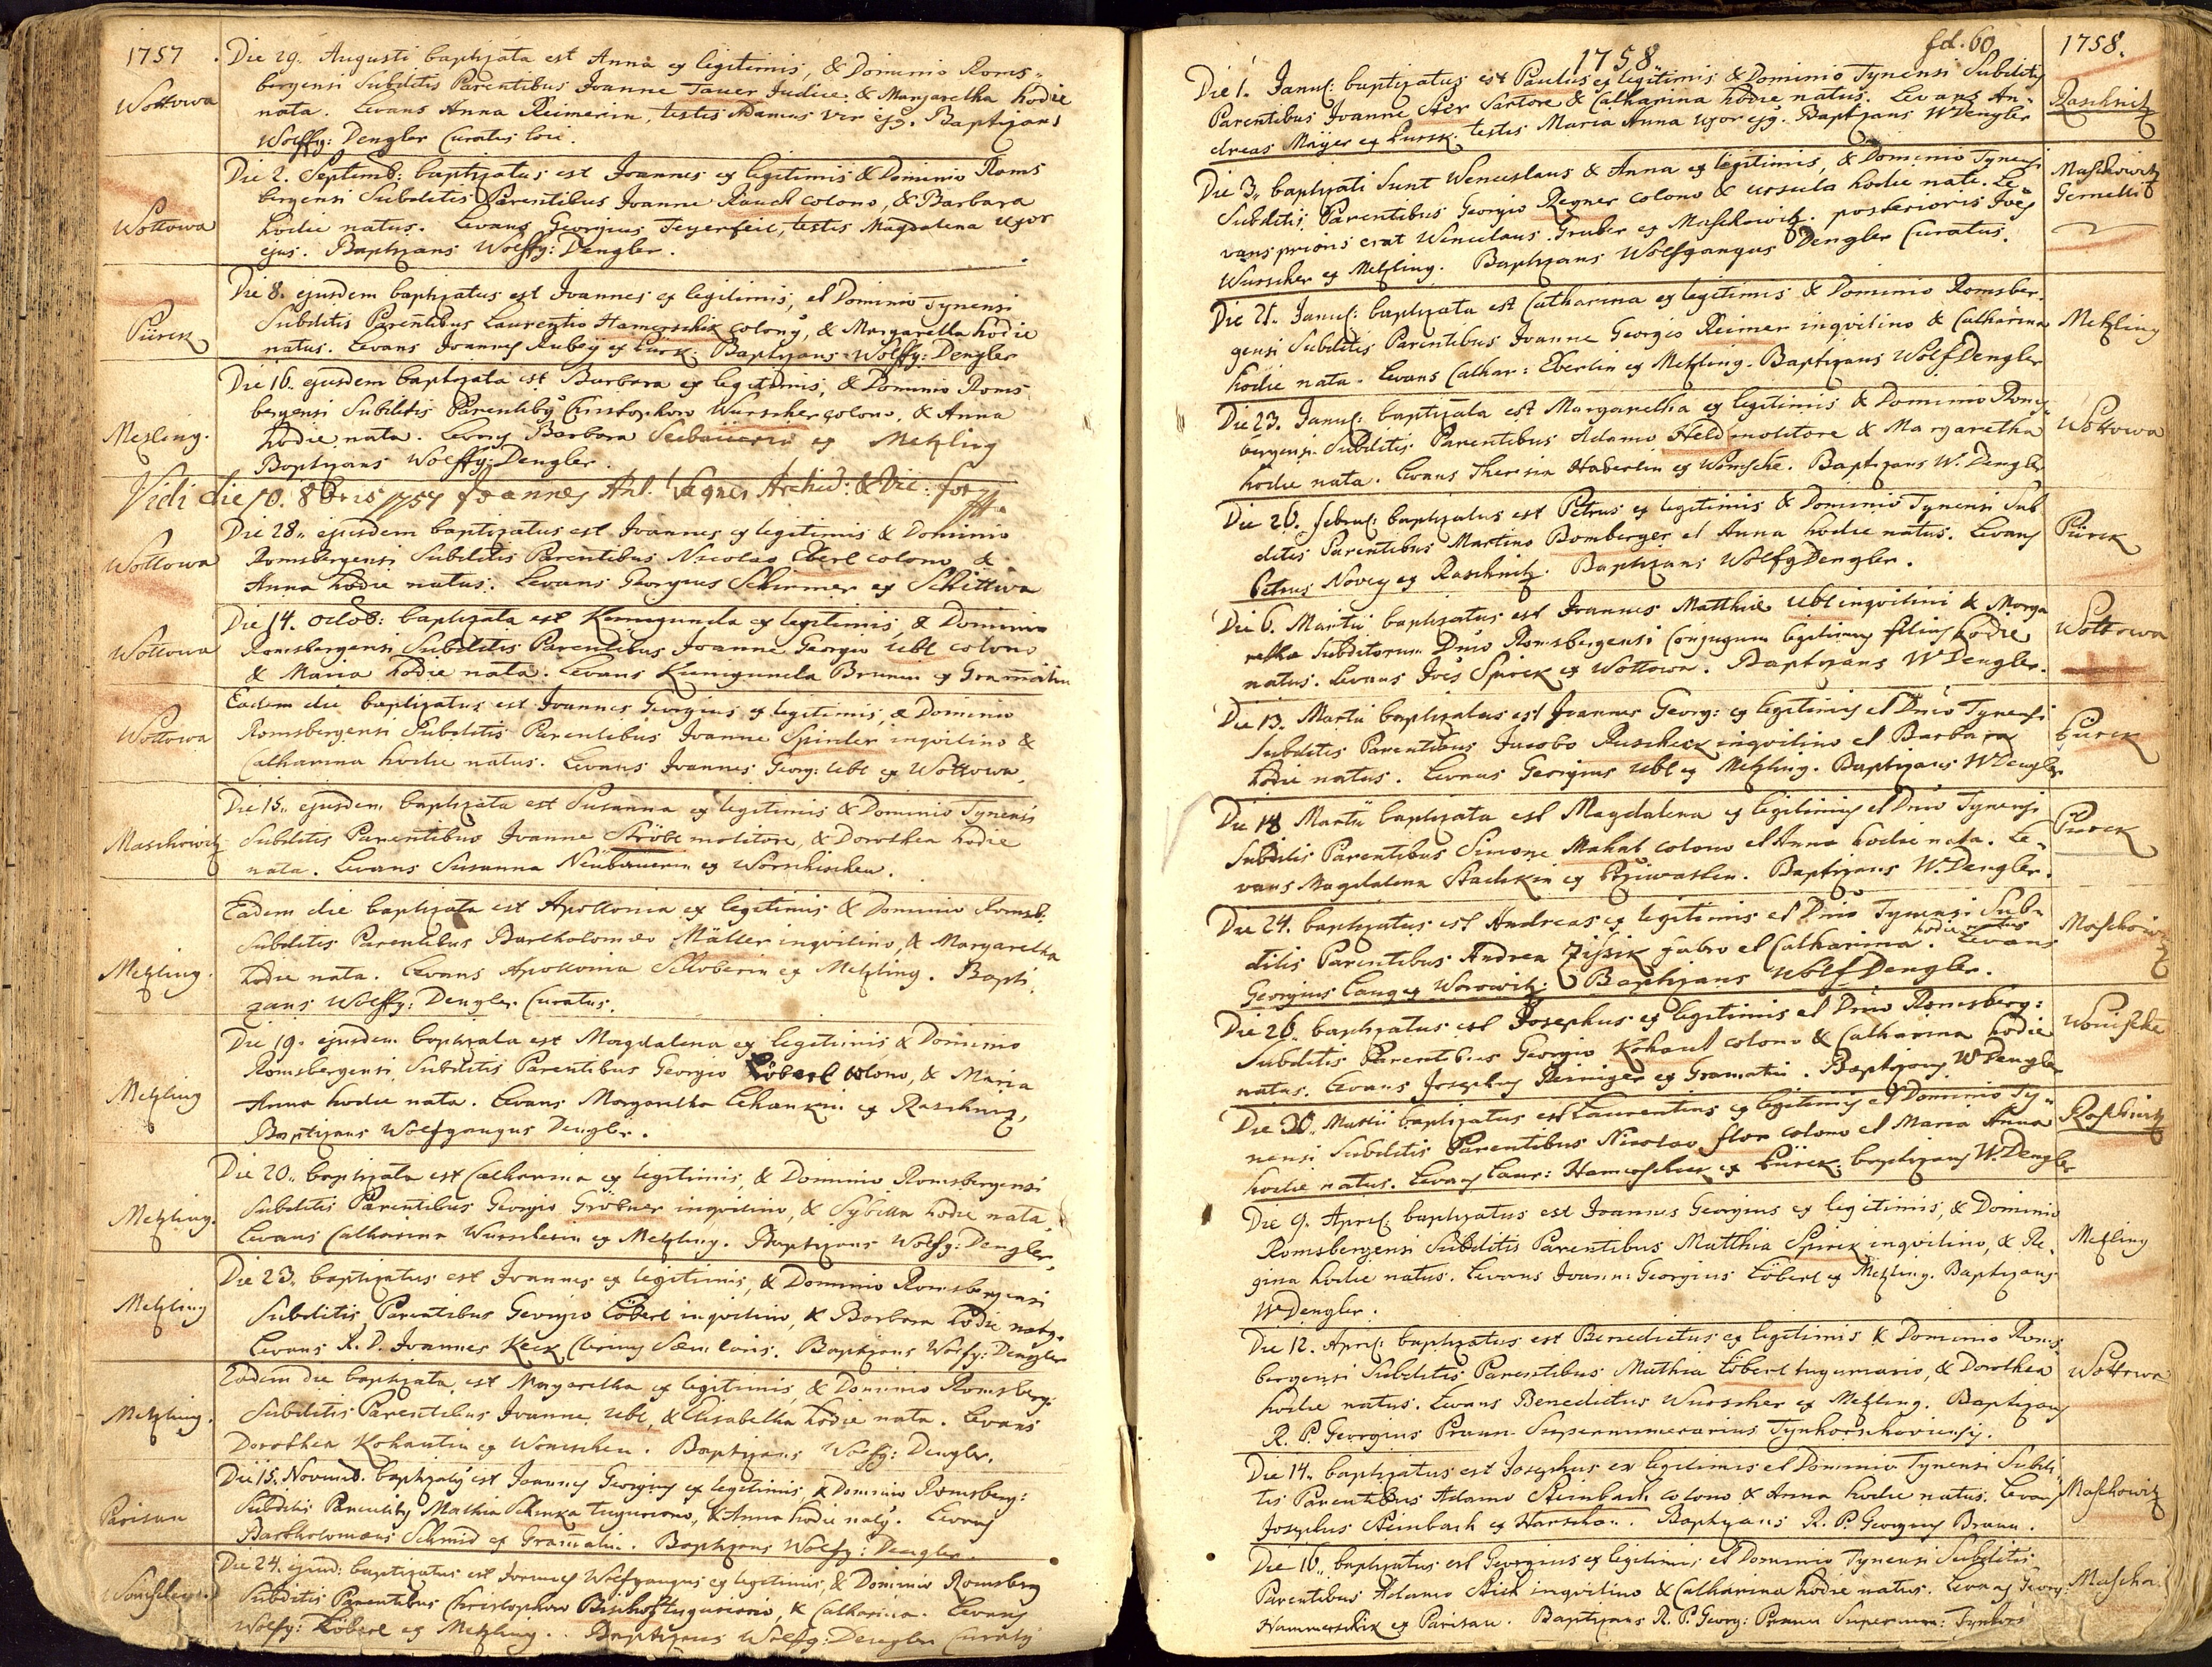 1757
Die 29. Augusti baptizata est Anna ex legitimis, & Dominio Roms-
Wottowa
bergensi Subditis Parentibus Joanne Tauer Judice & Margaretha hodie
nata. Levans Anna Reimerin, testis Adamus vir ejg. Baptizans
Wolffg: Dengler Curatus loci.
Die 2. Septemb: baptizatus est Joannes ex legitimis & Dominio Roms
Wottowa
bergensi Subditis Parentibus Joanne Rauch colono, & Barbara
hodie natus. Levans Georgius Feyerfeil, testis Magdalena uxor
ejus. Baptizans Wolffg: Dengler.
Die 8. ejusdem baptizatus est Joannes ex legitimis, et Dominio Tynensi
Pürck
Subditis Parentibus Laurentio Hamerschik colono, & Margaretha hodie
natus. Levans Joannes Rubey ex Pürk. Baptizans Wolffg: Dengler
Die 16. ejusdem baptizata est Barbara ex legitimis, & Dominio Roms
Mezling.
bergensi Subditis Parentibg Christophoro Wurscher colono, & Anna
hodie nata. Levans Barbara ex Metzling
Baptizans Wolffg: Dengler.
Vidi die 10. 8bris 1757 Joannes Ant. Wagner Archid: & Vic: for
Die 28. ejusdem baptizatus est Joannes ex legitimis & Dominio
Wottowa
Romsbergensi Subditis Parentibus Nicolao Eberl colono &
Anna hodie natus. Levans Georgius Schirmer ex Schittwa
Die 14. Octob: baptizata est Kunigunda ex legitimis, & Dominio
Wottowa
Romsbergensi Subditis Parentibus Joanne Georgio Ubl colono
& Maria hodie nata. Levans Kunigunda Brunin ex Gramatin
Eadem die baptizatus est Joannes Georgius ex legitimis, & Dominio
Wottowa
Romsbergensi Subditis Parentibus Joanne Spinler inqvilino &
Catharina hodie natus. Levans Joannes Georg: Ubl ex Wottowa.
Die 15. ejusdem baptizata est Susanna ex legitimis & Dominio Tynensi
Maschowitz
Subditis Parentibus Joanne Ströbl molitore, & Dorothea hodie
nata. Levans Susanna Neübauerin ex
Eadem die baptizata est Apollonia ex legitimis & Dominio Romsb.
Subditis Parentibus Bartholomeo Müller inqvilino, & Margaretha
Metzling.
hodie nata. Levans Apollonia Schoberin ex Metzling. Bapti
zans Wolffg: Dengler Curatus.
Die 19. ejusdem baptizata est Magdalena ex legitimis & Dominio
Metzling
Romsbergensi Subditis Parentibus Georgio Löberl colono, & Maria
Anna hodie nata. Levans Margaretha ex Raschnitz.
Baptizans Wolfgangus Dengler.
Die 20. baptizata est Catharina ex legitimis, & Dominio Romsbergensi
Metzling.
Subditis Parentibus Georgio Gröbner inqvilino, & Sybilla hodie nata.
Levans Catharina Wurscherin ex Metzling. Baptizans Wolffg: Dengler.
Die 23. baptizatus est Joannes ex legitimis, & Dominio Romsbergensi
Metzling
Subditis Parentibus Georgio Löberl inqvilino, & Barbara hodie natg.
Levans R. D. Joannes Keck Baptizans Wolffg: Dengler
Eadem die baptizata est Margaretha ex legitimis, & Dominio Romsberg:
Metzling.
Subditis Parentibus Joanne Ubl, & Elisabetha hodie nata. Levans
Dorothea Kohautin ex Wonischen. Baptizans Wolffg: Dengler.
Die 15. Novemb. baptizatg est Joannes Georgius ex legitimis & Dominio Romsberg:
Parisau
Subditis Parentibg Mathia Schinka tuguriario, & Anna hodie natg. Levans
Bartholomaeus Schmid ex Gramatin. Baptizans Wolffg: Dengler.
Die 24. ejusd: baptizatus est Joannes Wolfgangus ex legitimis, & Dominio Romsberg
Subditis Parentibus Christophoro Bischof tuguriario, & Catharina. Levans
Wolffg: Löberl ex Metzling. Baptizans Wolffg: Dengler Curatg
fol. 60
1758
1758.
Die 1. Janu: baptizatus est Paulus ex legitimis & Dominio Tynensi Subditis
Raschnitz
Parentibus Joanne Ster Sartore & Catharina hodie natus. Levans An-
dreas Mayer ex Pursk. testis Maria Anna uxor ejg. Baptizans W Dengler
Die 3. baptizati sunt Wenceslaus & Anna ex legitimis, & Dominio Tynensi
Maschowitz
Gemelli
Subditis Parentibus Georgio Regner colono & Ursula hodie nati. Le-
vans prioris erat Wenceslaus Gruber ex Maschowitz. posterioris Joes
Wurscher ex Metzling. Baptizans Wolfgangus Dengler Curatus.
Die 21. Janu: baptizata est Catharina ex legitimis & Dominio Romsber-
Metzling
gensi Subditis Parentibus Joanne Georgio Reimer inqvilino & Catharina
hodie nata. Levans Cathar: Eberlin ex Metzling. Baptizans Wolf Dengler
Die 23. Janu: baptizata est Margaretha ex legitimis & Dominio Roms-
Wottowa
bergensi Subditis Parentibus Adamo Held molitore & Margaretha
hodie nata. Levans Theresia Haberlin ex Wonische. Baptizans W. Dengler
Die 26. Febru: baptizatus est Petrus ex legitimis & Dominio Tynensi Sub
Pürck
ditis Parentibus Martino Bomberger et Anna hodie natus. Levans
Petrus Novey ex Raschnitz. Baptizans Wolfg Dengler.
Die 6. Martii baptizatus est Joannes Matthiae Ubl inqvilini & Marga
Wottowa
retha Subditorum Dnio Romsbergensi Conjugum legitimg filius hodie
natus. Levans Joes Spirek ex Wottowa. Baptizans W Dengler.
Die 13. Martii baptizatus est Joannes Georg: ex legitimis et Dnio Tynensi
Pürck
Subditis Parentibus Jacobo Ruscheck inqvilino et Barbara
hodie natus. Levans Georgius Ubl ex Metzling. Baptizans W Dengler
Die 18 Martii baptizata est Magdalena ex legitimis et Dnio Tynensi
Pürck
Subditis Parentibus Simone Mahal colono et Anna hodie nata. Le-
vans Magdalena Stachkin ex Baptizans W. Dengler.
Die 24. baptizatus est Andreas ex legitimis et Dnio Tynensi Sub-
Maschowitz
ditis Parentibus Andrea Zissik fabro et Catharina hodie natus. Levans
Georgius Lang ex Worowitz. Baptizans Wolf Dengler.
Die 26. baptizatus est Josephus ex legitimis et Dnio Romsberg:
Wonische
Subditis Parentibus Georgio Kohaut colono & Catharina hodie
natus. Levans Josephus Reiniger ex Gramatin. Baptizans W Dengler
Die 30. Martii baptizatus est Laurentius ex legitimis et Dominio Ty-
Raschnitz
nensi Subditis Parentibus Nicolao Flor colono et Maria Anna
hodie natus. Levans Laur: Hamerschick ex Pürck. baptizans W. Dengler
Die 9. April: baptizatus est Joannes Georgius ex legitimis, & Dominio
Metzling
Romsbergensi Subditis Parentibus Matthia Spirek inqvilino, & Re-
gina hodie natus. Levans Joann: Georgius Löberl ex Metzling. Baptizans
W Dengler.
Die 12. April: baptizatus est Benedictus ex legitimis & Dominio Roms
Wottowa
bergensi Subditis Parentibus Mathia Löberl tuguriario, & Dorothea
hodie natus. Levans Benedictus Wurscher ex Metzling. Baptizans
R. P. Georgius Praun Supernumerarius Tynhorschoviensis.
Die 14. baptizatus est Josephus ex legitimis et Dominio Tynensi Subdi
Maschowitz
tis Parentibus Adamo Steinbach colono & Anna hodie natus. Levans
Josephus Steinbach ex Horschau. Baptizans R. P. Georgius Braun.
Die 16. baptizatus est Georgius ex legitimis, et Dominio Tynensi Subditis
Parentibus Adamo inqvilino & Catharina hodie natus. Levans Georg:
Hammerschick ex Parisau. Baptizans R. P. Georg: Praun Supernum: Tynhors